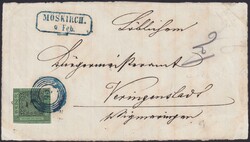 MÖSKIRCH.
9 Feb.
Löblichem
Bürgermeisteramt
Veringenstadt
Sigmaringen